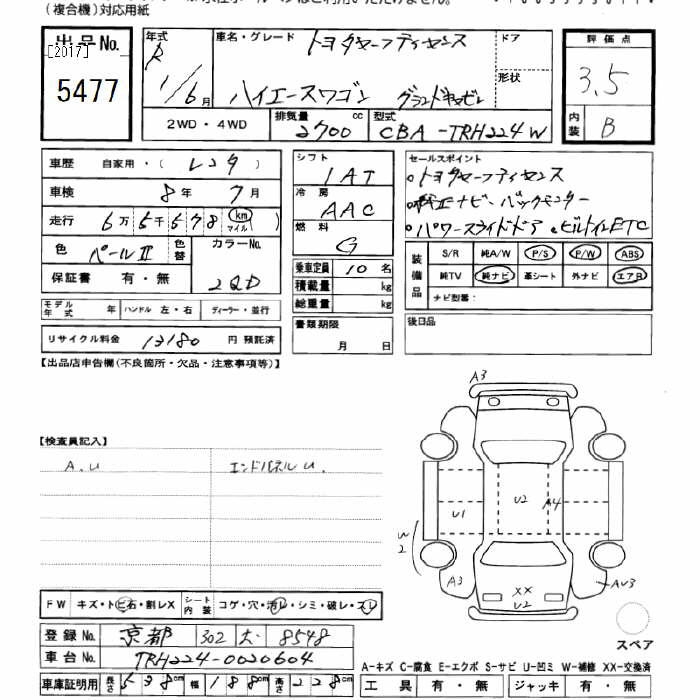 (複合機)対応用紙
出品No. [2017] 5477
年式 R 1/6月
車名・グレード トヨタセーフティセンス
ハイエースワゴン グランドキャビン
ドア
形状
評価点 3.5
内装 B
2WD・4WD 排気量 2700 cc 型式 CBA-TRH224W
車歴 自家用・(レンタ)
車検 8年 7月
走行 6万5千578 (km マイル)
色 パールII 色替 カラーNo. 2QD
保証書 有・無
シフト IAT
冷房 AAC
燃料 G
乗車定員 10名
積載量 kg
総重量 kg
書類期限 月 日
セールスポイント
・トヨタセーフティセンス
・純正ナビ・バックモニター
・パワースライドドア・ビルトインETC
装備品 S/R 純A/W P/S P/W ABS
純TV 純ナビ 革シート 外ナビ エアB
ナビ型番:
後日品
モデル年式 年 ハンドル 左・右 ディーラー・並行
リサイクル料金 13180 円 預託済
【出品店申告欄(不良箇所・欠品・注意事項等)】
【検査員記入】
A.U エンドパネルU.
A3
U1 U2 A4
W2
A3 XX U2 AU3
スペア
FW キズ・トビ石・割レX シート内装 コゲ・穴・汚レ・シミ・破レ・スレ
登録No. 京都 302 8548
車台No. TRH224-0020604
車庫証明用 長さ 538cm 幅 188cm 高さ 228cm
A-キズ C-腐食 E-エクボ S-サビ U-凹ミ W-補修 XX-交換済
工具 有・無 ジャッキ 有・無